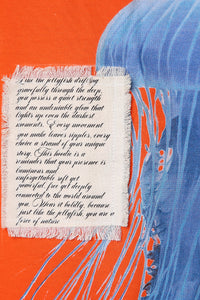 Like the jellyfish drifting
gracefully through the deep,
you possess a quiet strength
and an undeniable glow that
lights up even the darkest
moments. Every movement
you make leaves ripples, every
choice a strand of your unique
story. This hoodie is a
reminder that your presence is
luminous and
unforgettable soft yet
powerful, free yet deeply
connected to the world around
you. Wear it boldly, because
just like the jellyfish, you are a
force of nature.